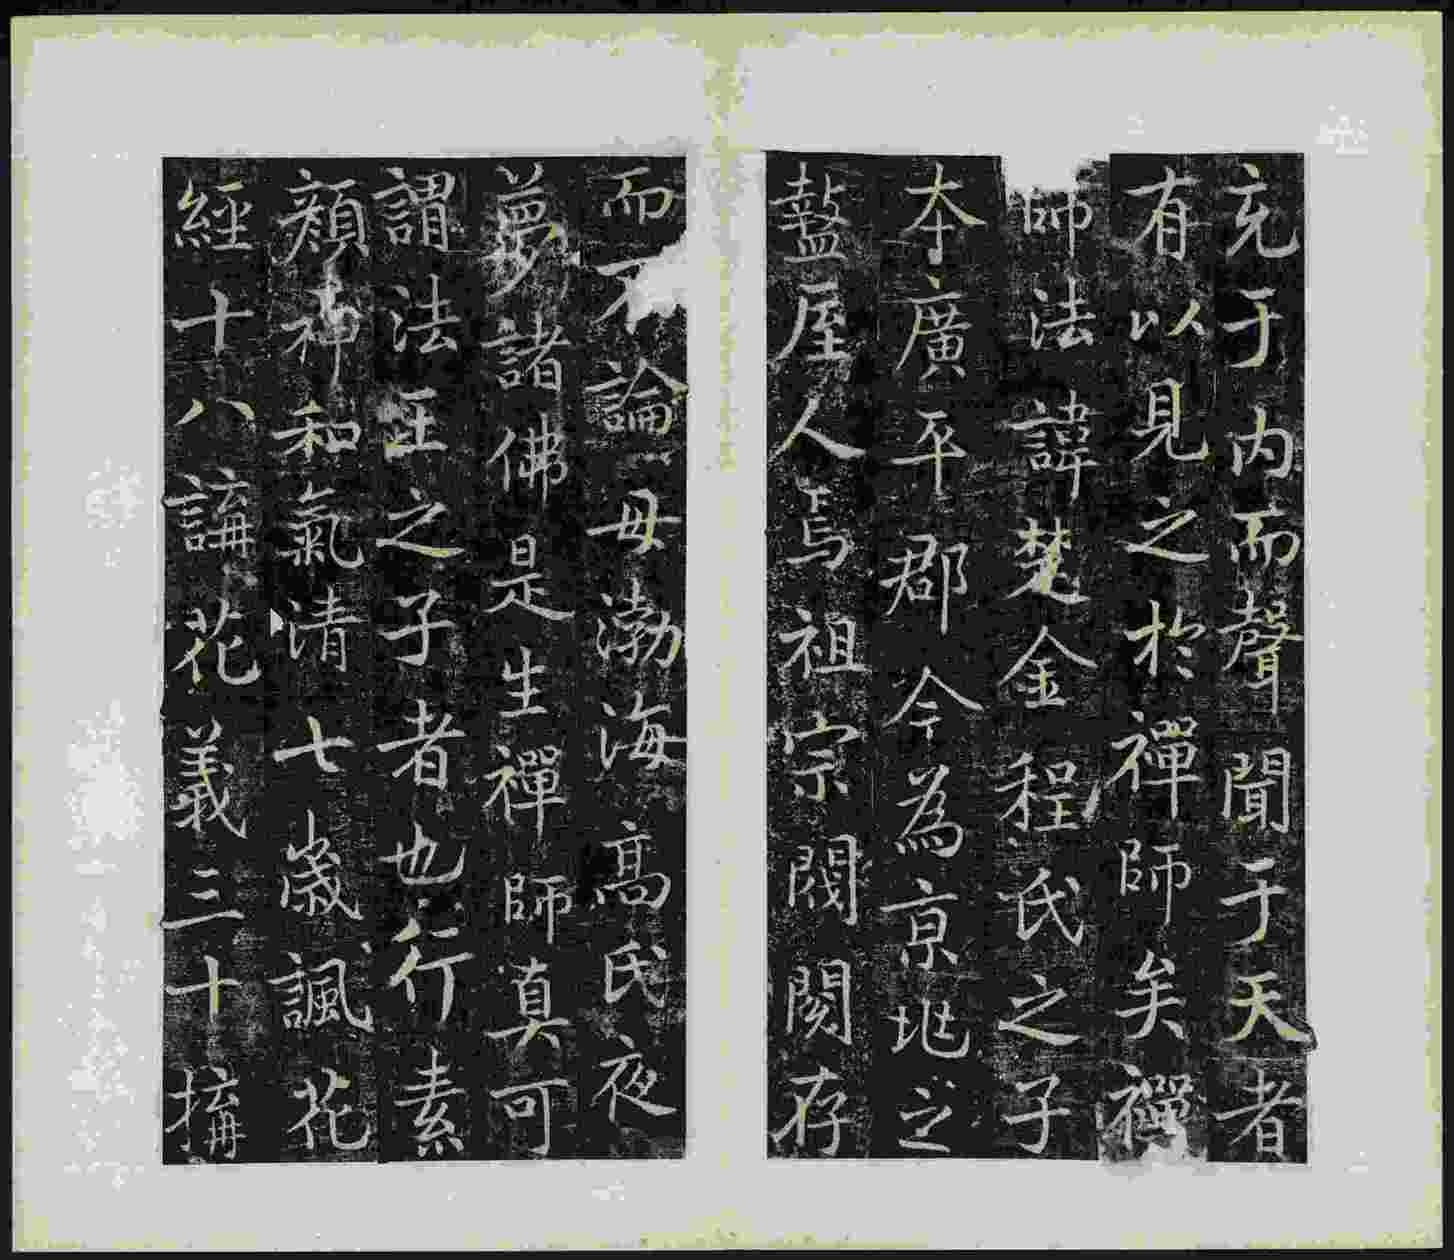 充于内而聲聞于天者
有以見之於禪師矣禪
師法諱楚金程氏之子
本廣平郡今為京地之
盩厔人焉祖宗閥閱存
而不論母渤海高氏夜
夢諸佛是生禪師真可
謂法王之子者也行素
顏神和氣清七歲諷花
經十八講花義三十搆